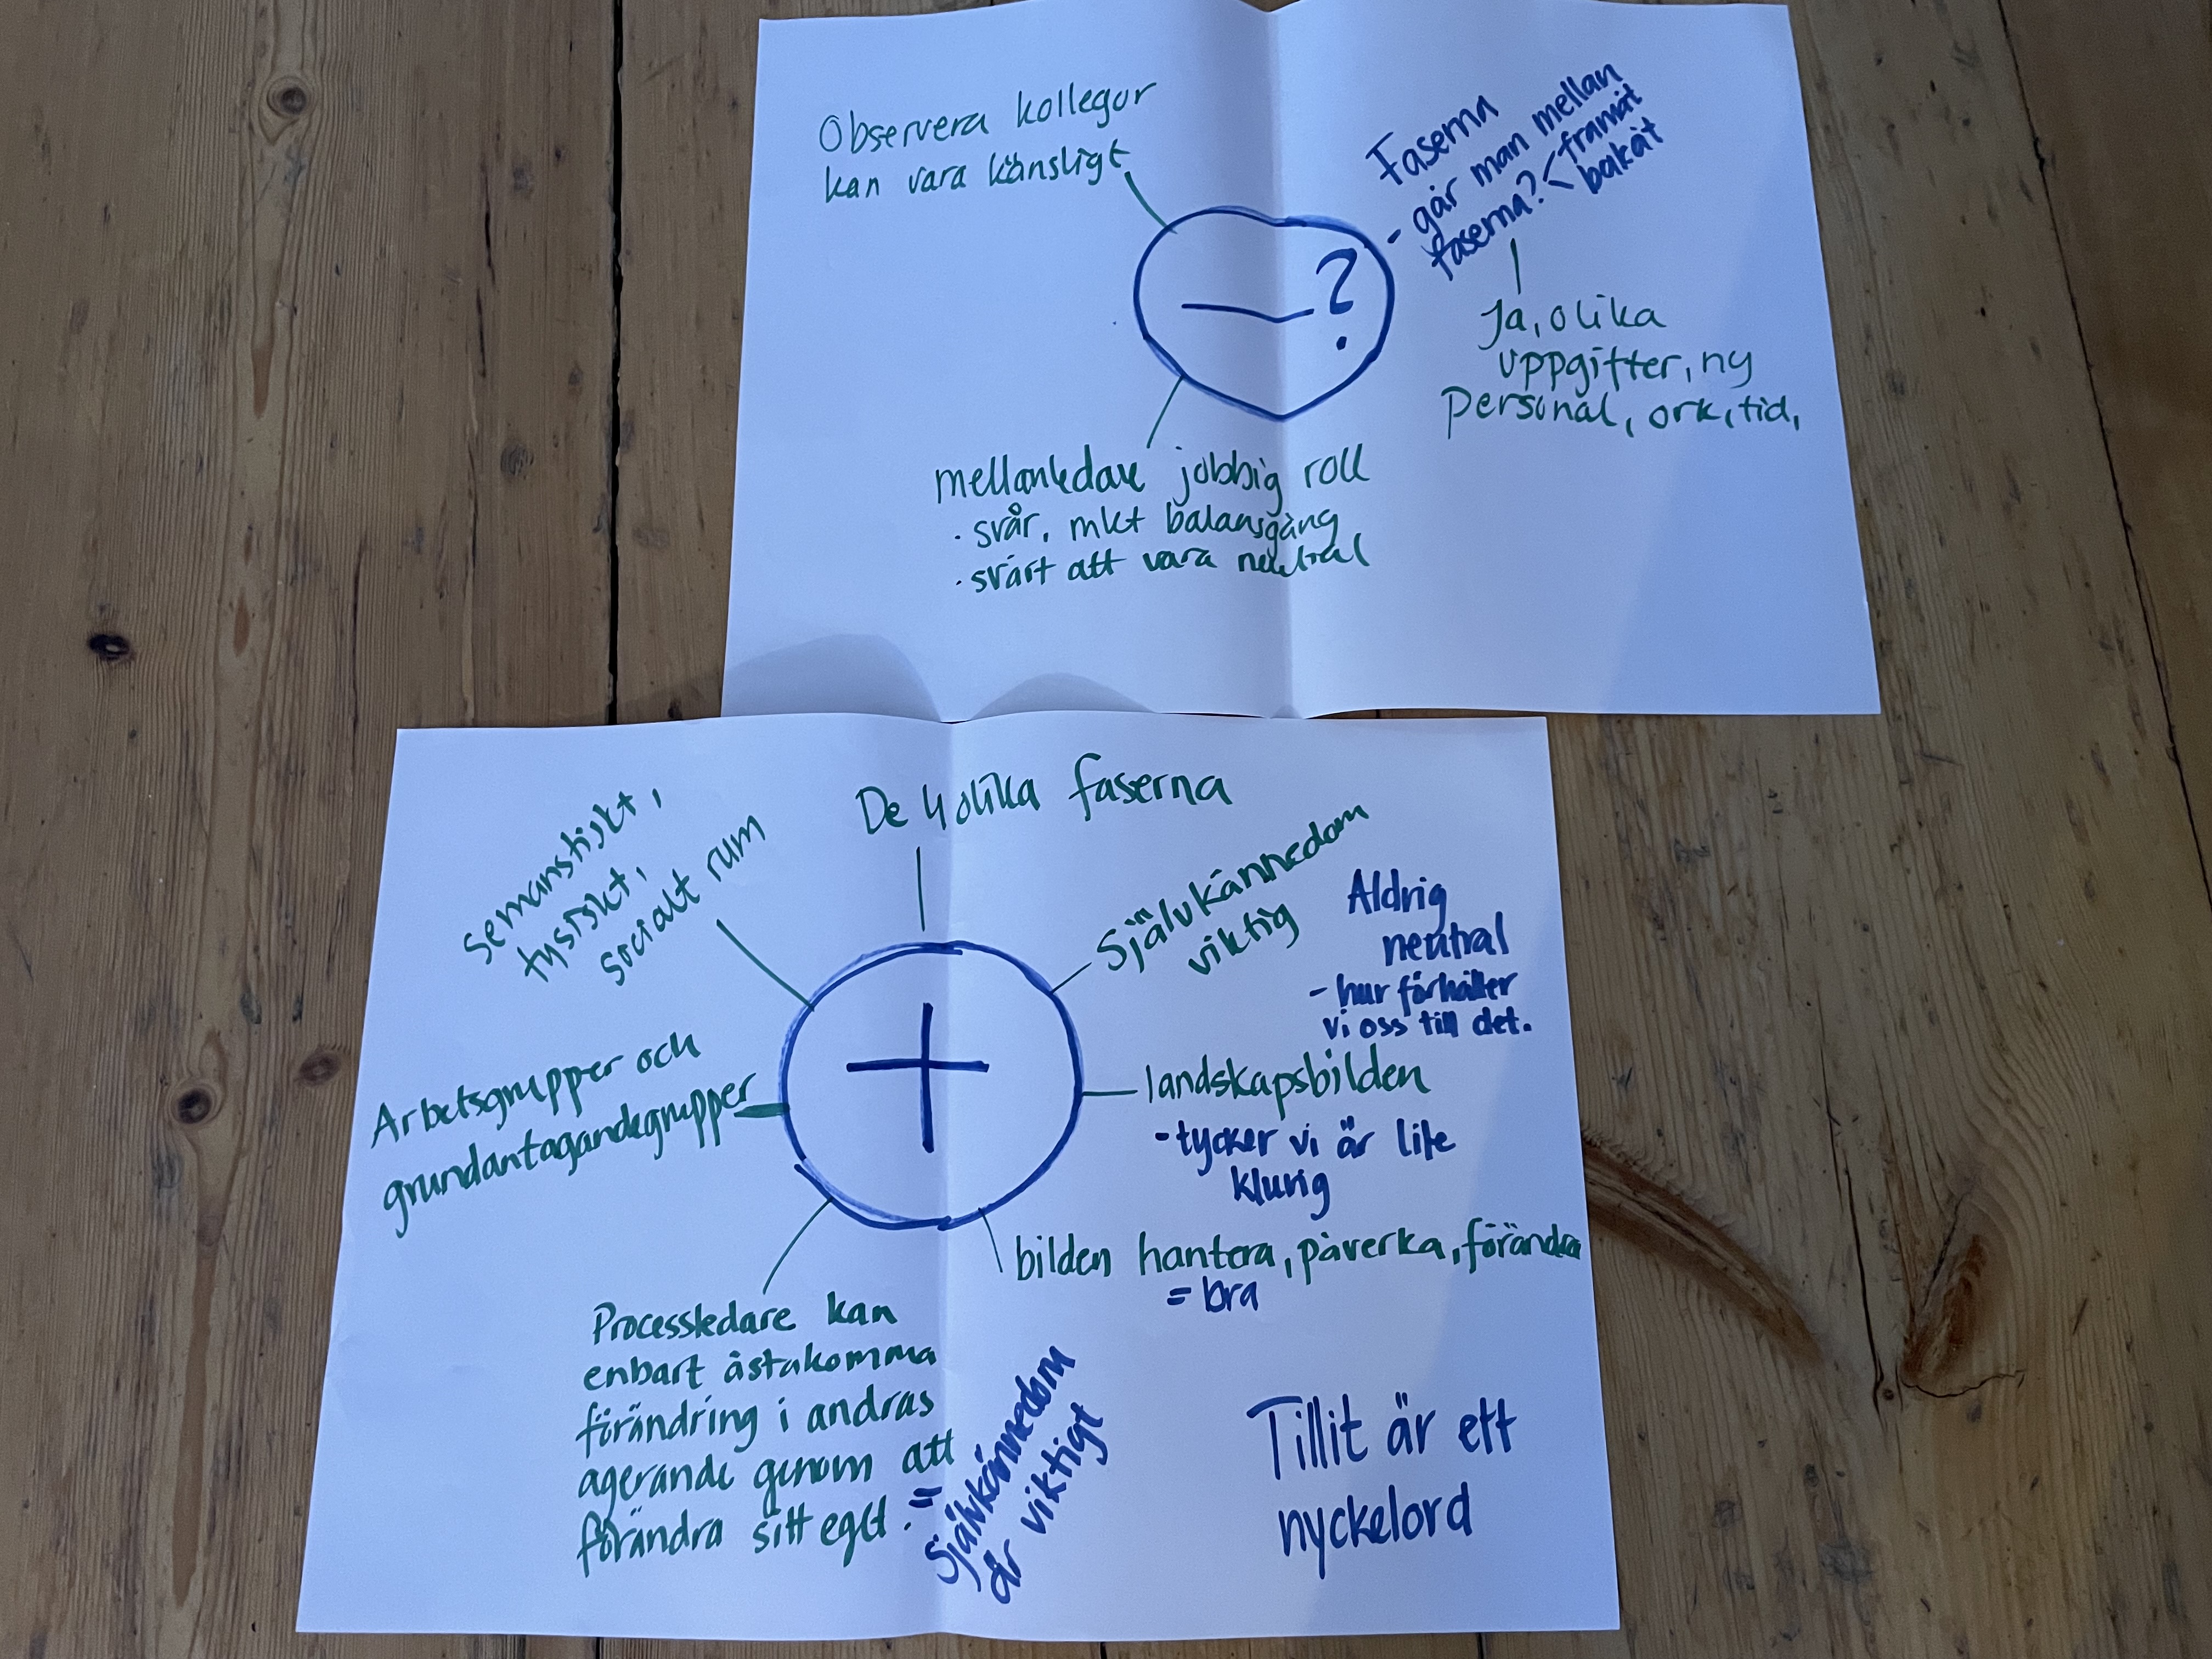 Observera kollegor
kan vara känsligt
Faserna
- går man mellan
faserna? < framåt
bakåt
Ja, olika
uppgifter, ny
personal, ork, tid,
— ?
mellanledare jobbig roll
· svår, mkt balansgång
· svårt att vara neutral
De 4 olika faserna
semanstiskt,
fysiskt,
socialt rum
Självkännedom
viktig
Aldrig
neutral
- hur förhåller
vi oss till det.
+
landskapsbilden
- tycker vi är lite
klurig
Arbetsgrupper och
grundantagandegrupper
bilden hantera, påverka, förändra
= bra
Processledare kan
enbart åstakomma
förändring i andras
agerande genom att
förändra sitt eget.
= Självkännedom
är viktigt
Tillit är ett
nyckelord